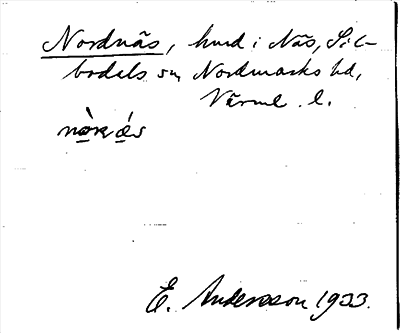 Nordnäs, hmd i Näs, Sil-
bodals sn, Nordmarks hd,
Värml. l.
E. Andersson 1933.